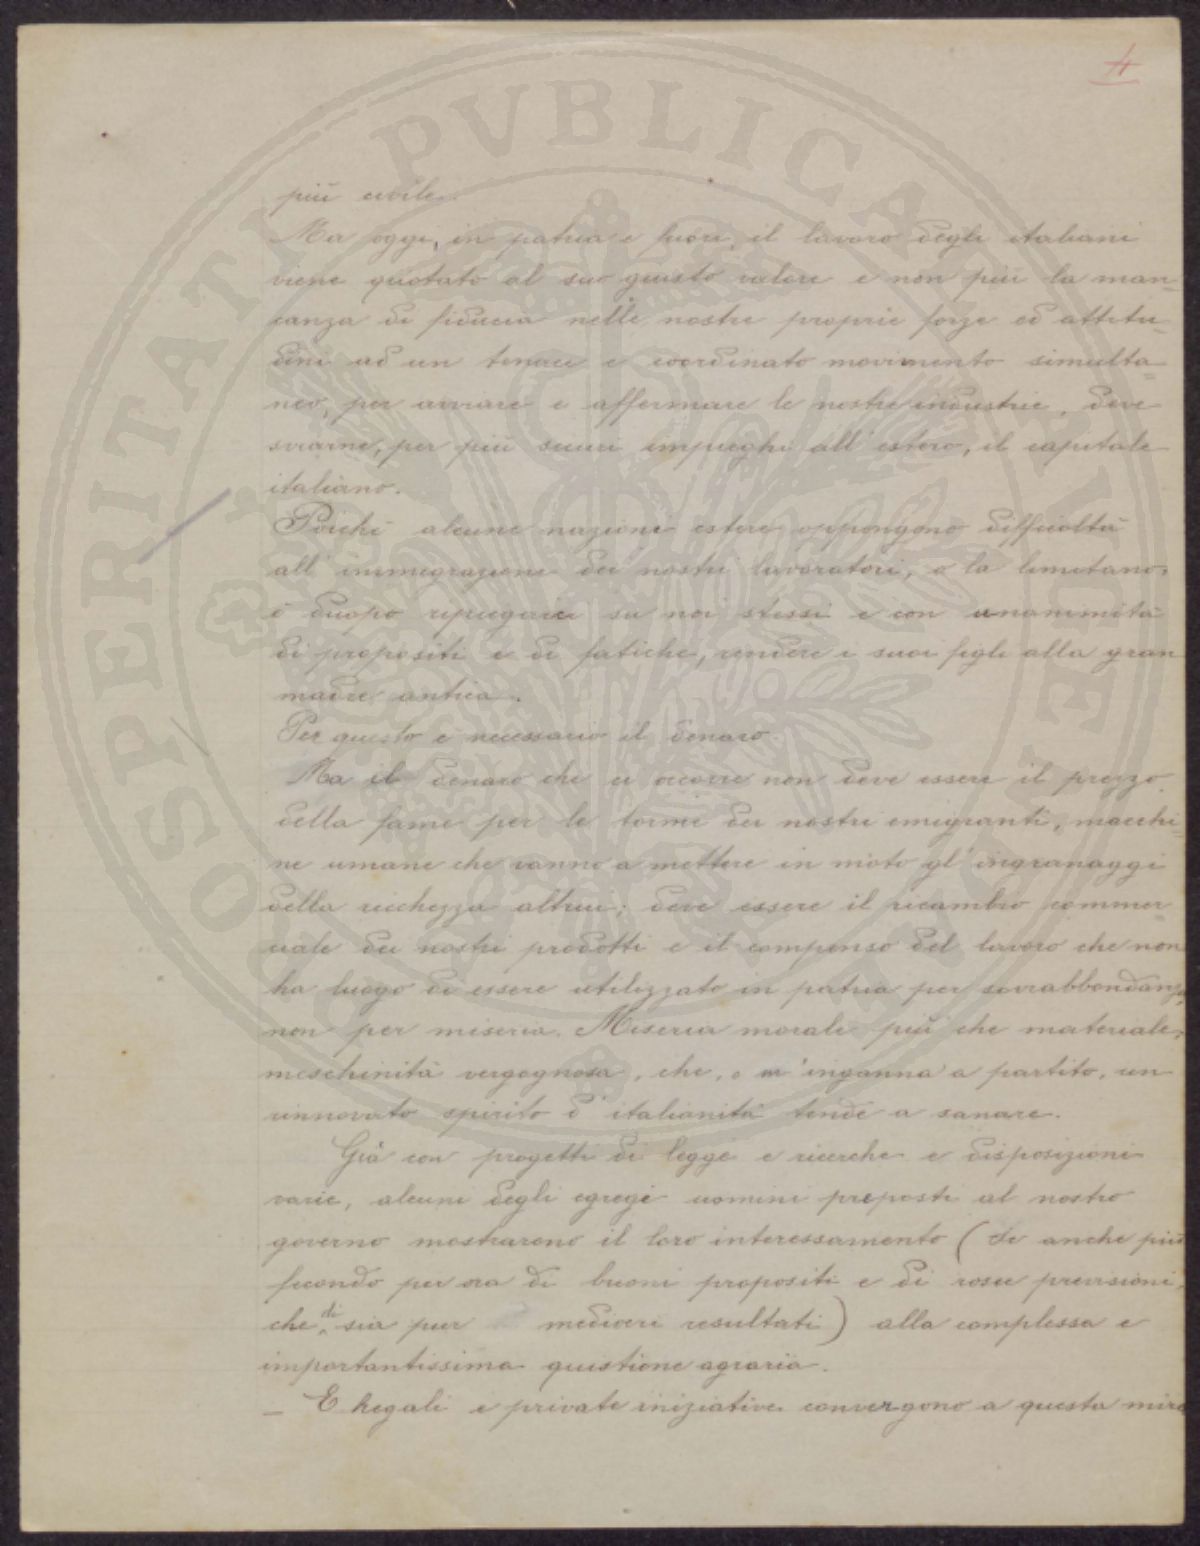 4
più civile.
Ma oggi, in patria e fuori, il lavoro degli italiani
viene quotato al suo giusto valore e non più la man=
canza di fiducia nelle nostre proprie forze ed attitu=
dini ad un tenace e coordinato movimento simulta=
neo, per avviare e affermare le nostre industrie, deve
sviarne, per più sicuri impieghi all'estero, il capitale
italiano.
Poichè alcune nazioni estere oppongono difficoltà
all'immigrazione dei nostri lavoratori, o la limitano,
è duopo ripiegarci su noi stessi e con unanimità
di propositi e di fatiche, rendere i suoi figli alla gran
madre antica.
Per questo è necessario il denaro.
Ma il denaro che ci occorre non deve essere il prezzo
della fame per le torme dei nostri emigranti, macchi=
ne umane che vanno a mettere in moto gl'ingranaggi
della ricchezza altrui; deve essere il ricambio commer=
ciale dei nostri prodotti e il compenso del lavoro che non
ha luogo di essere utilizzato in patria per sovrabbondanza,
non per miseria. Miseria morale più che materiale,
meschinità vergognosa, che, o m'inganna a partito, un
rinnovato spirito d'italianità tende a sanare.
Già con progetti di legge e ricerche e disposizioni
varie, alcuni degli egregi uomini preposti al nostro
governo mostrarono il loro interessamento (se anche più
fecondo per ora di buoni propositi e di rosee previsioni,
che di sia pur mediocri resultati) alla complessa e
importantissima quistione agraria.
_ E regali e private iniziative convergono a questa mira
PROSPERITATI PVBLICAE